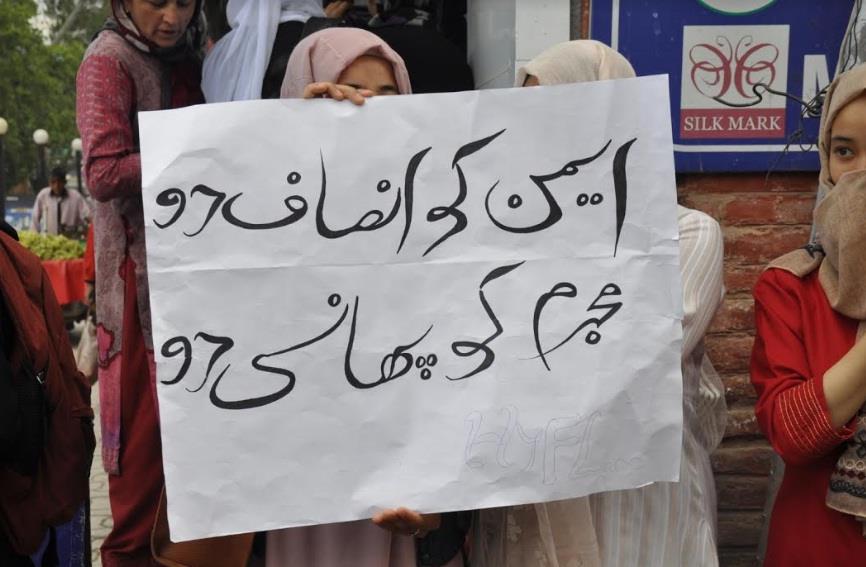 ایمن کو انصاف دو
مجرم کو پھانسی دو
SILK MARK